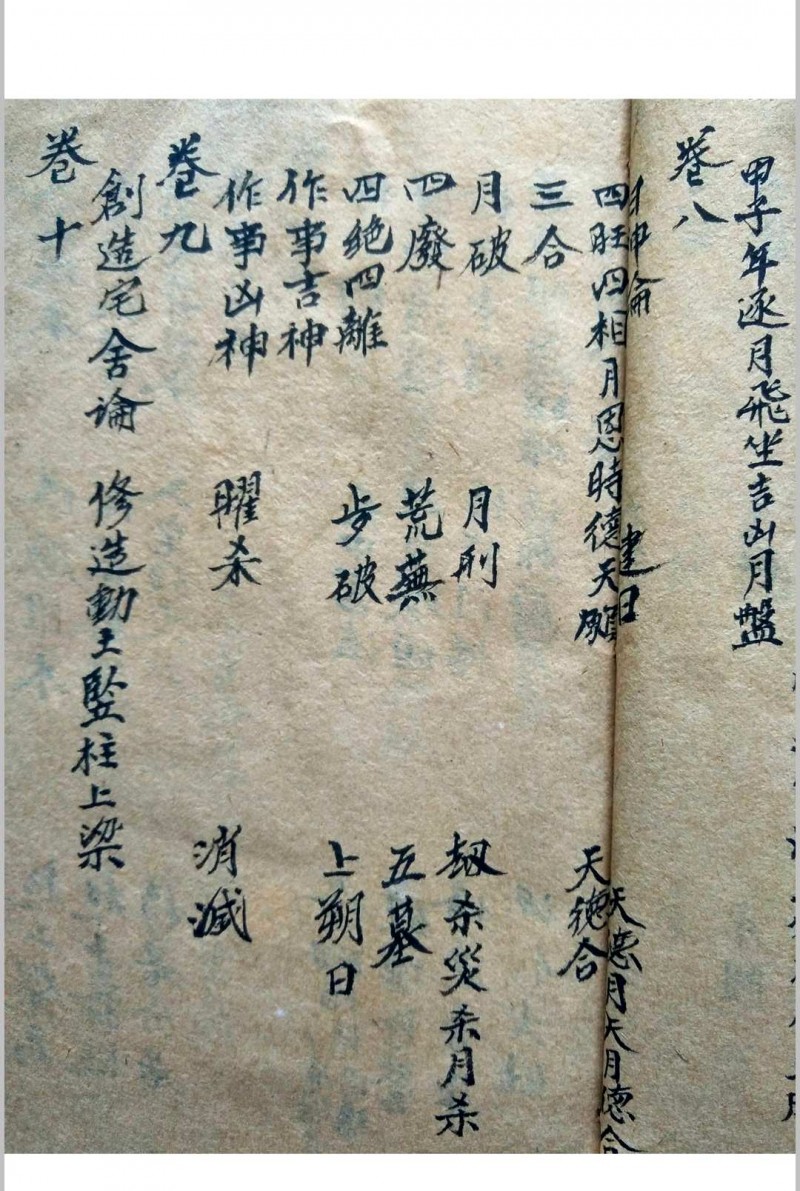 甲子年逐月飛坐吉凶月盤
卷八
神論 建日 天德月天月德合
四旺四相月恩時德天願 天德合
三合
月破 月刑 劫杀災杀月杀
四廢 荒蕪 五墓
四绝四離 步破 上朔日
作事吉神
作事凶神 曜杀 消滅
卷九
創造宅舍論 修造動土豎柱上梁
卷十